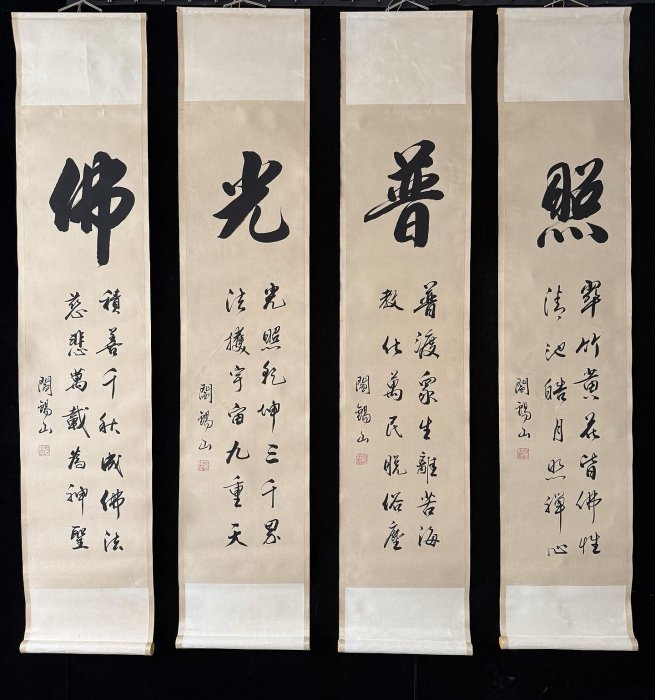 佛
積善千秋成佛法
慈悲萬載為神聖
閻錫山
光
光照乾坤三千界
法護宇宙九重天
閻錫山
普
普渡眾生離苦海
教化萬民脫俗塵
閻錫山
照
翠竹黃花皆佛性
清池皓月照禪心
閻錫山